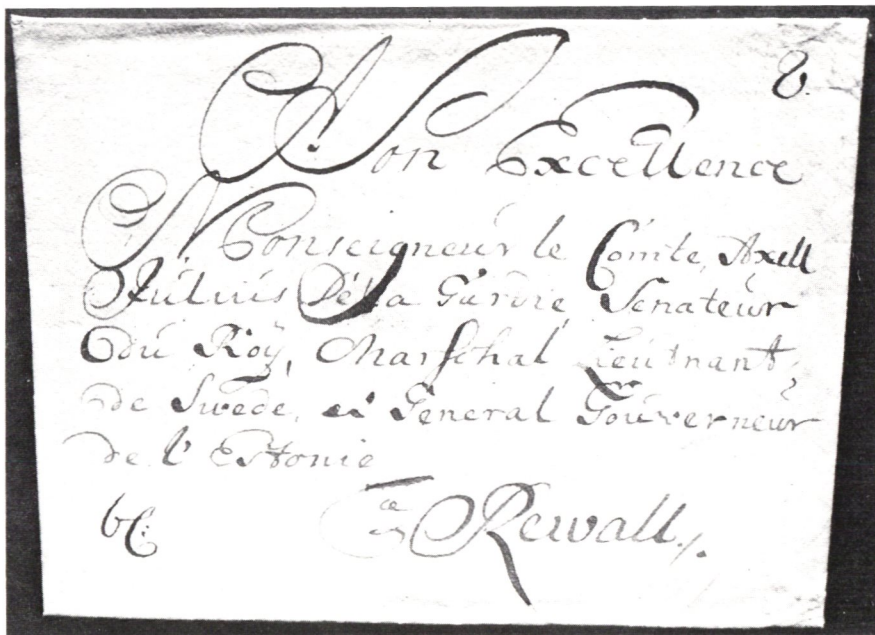 8.
A Son Excellence
Monseigneur le Comte, Axell
Julius De la Gardie, Senateur
du Roÿ, Marschal Lieutnant,
de Swede, et General Gouverneur
de l'Estonie
Rewall./.